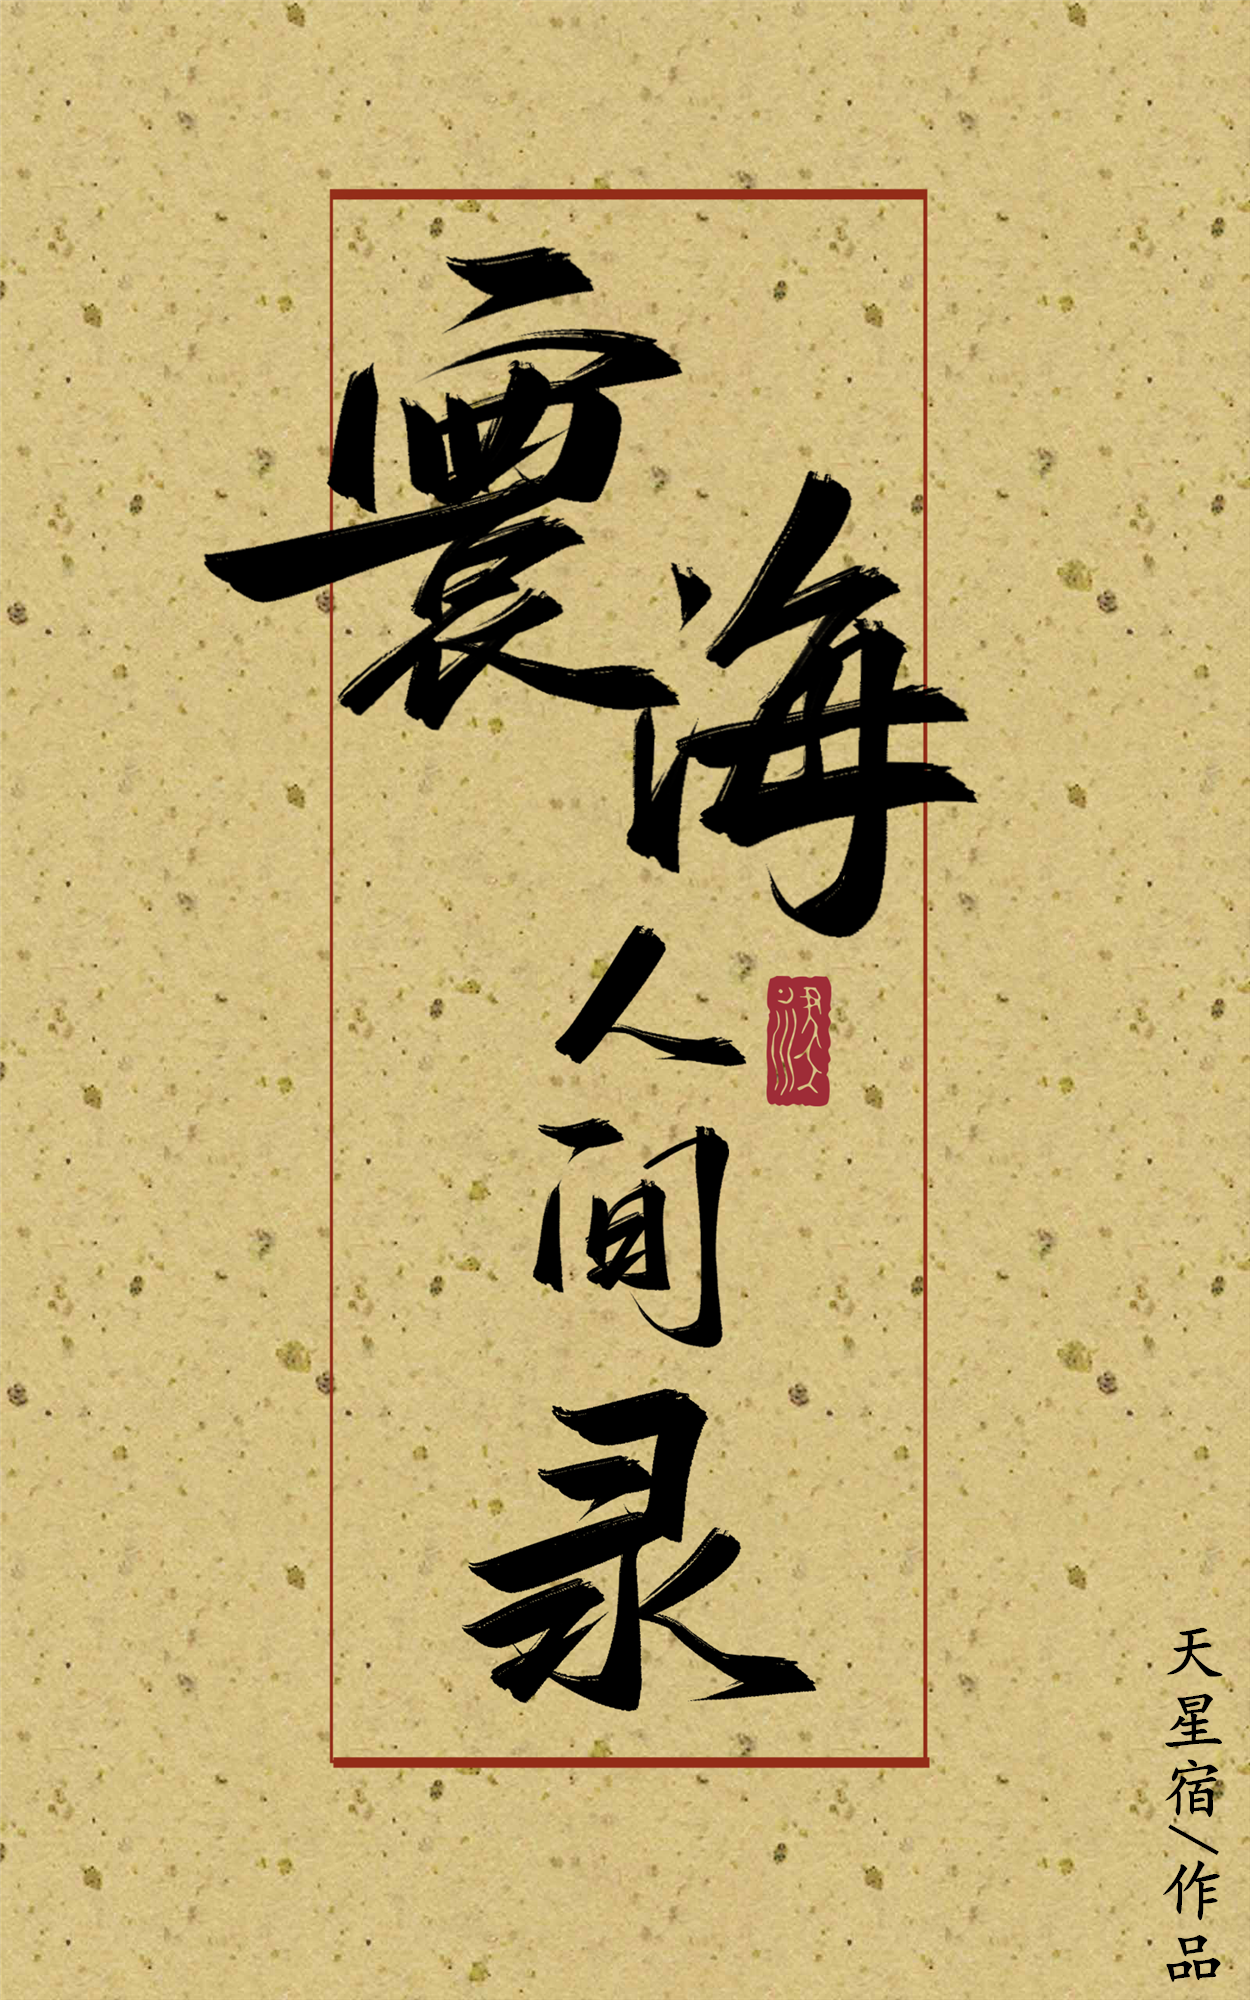 寰海人间录
天星宿/作品